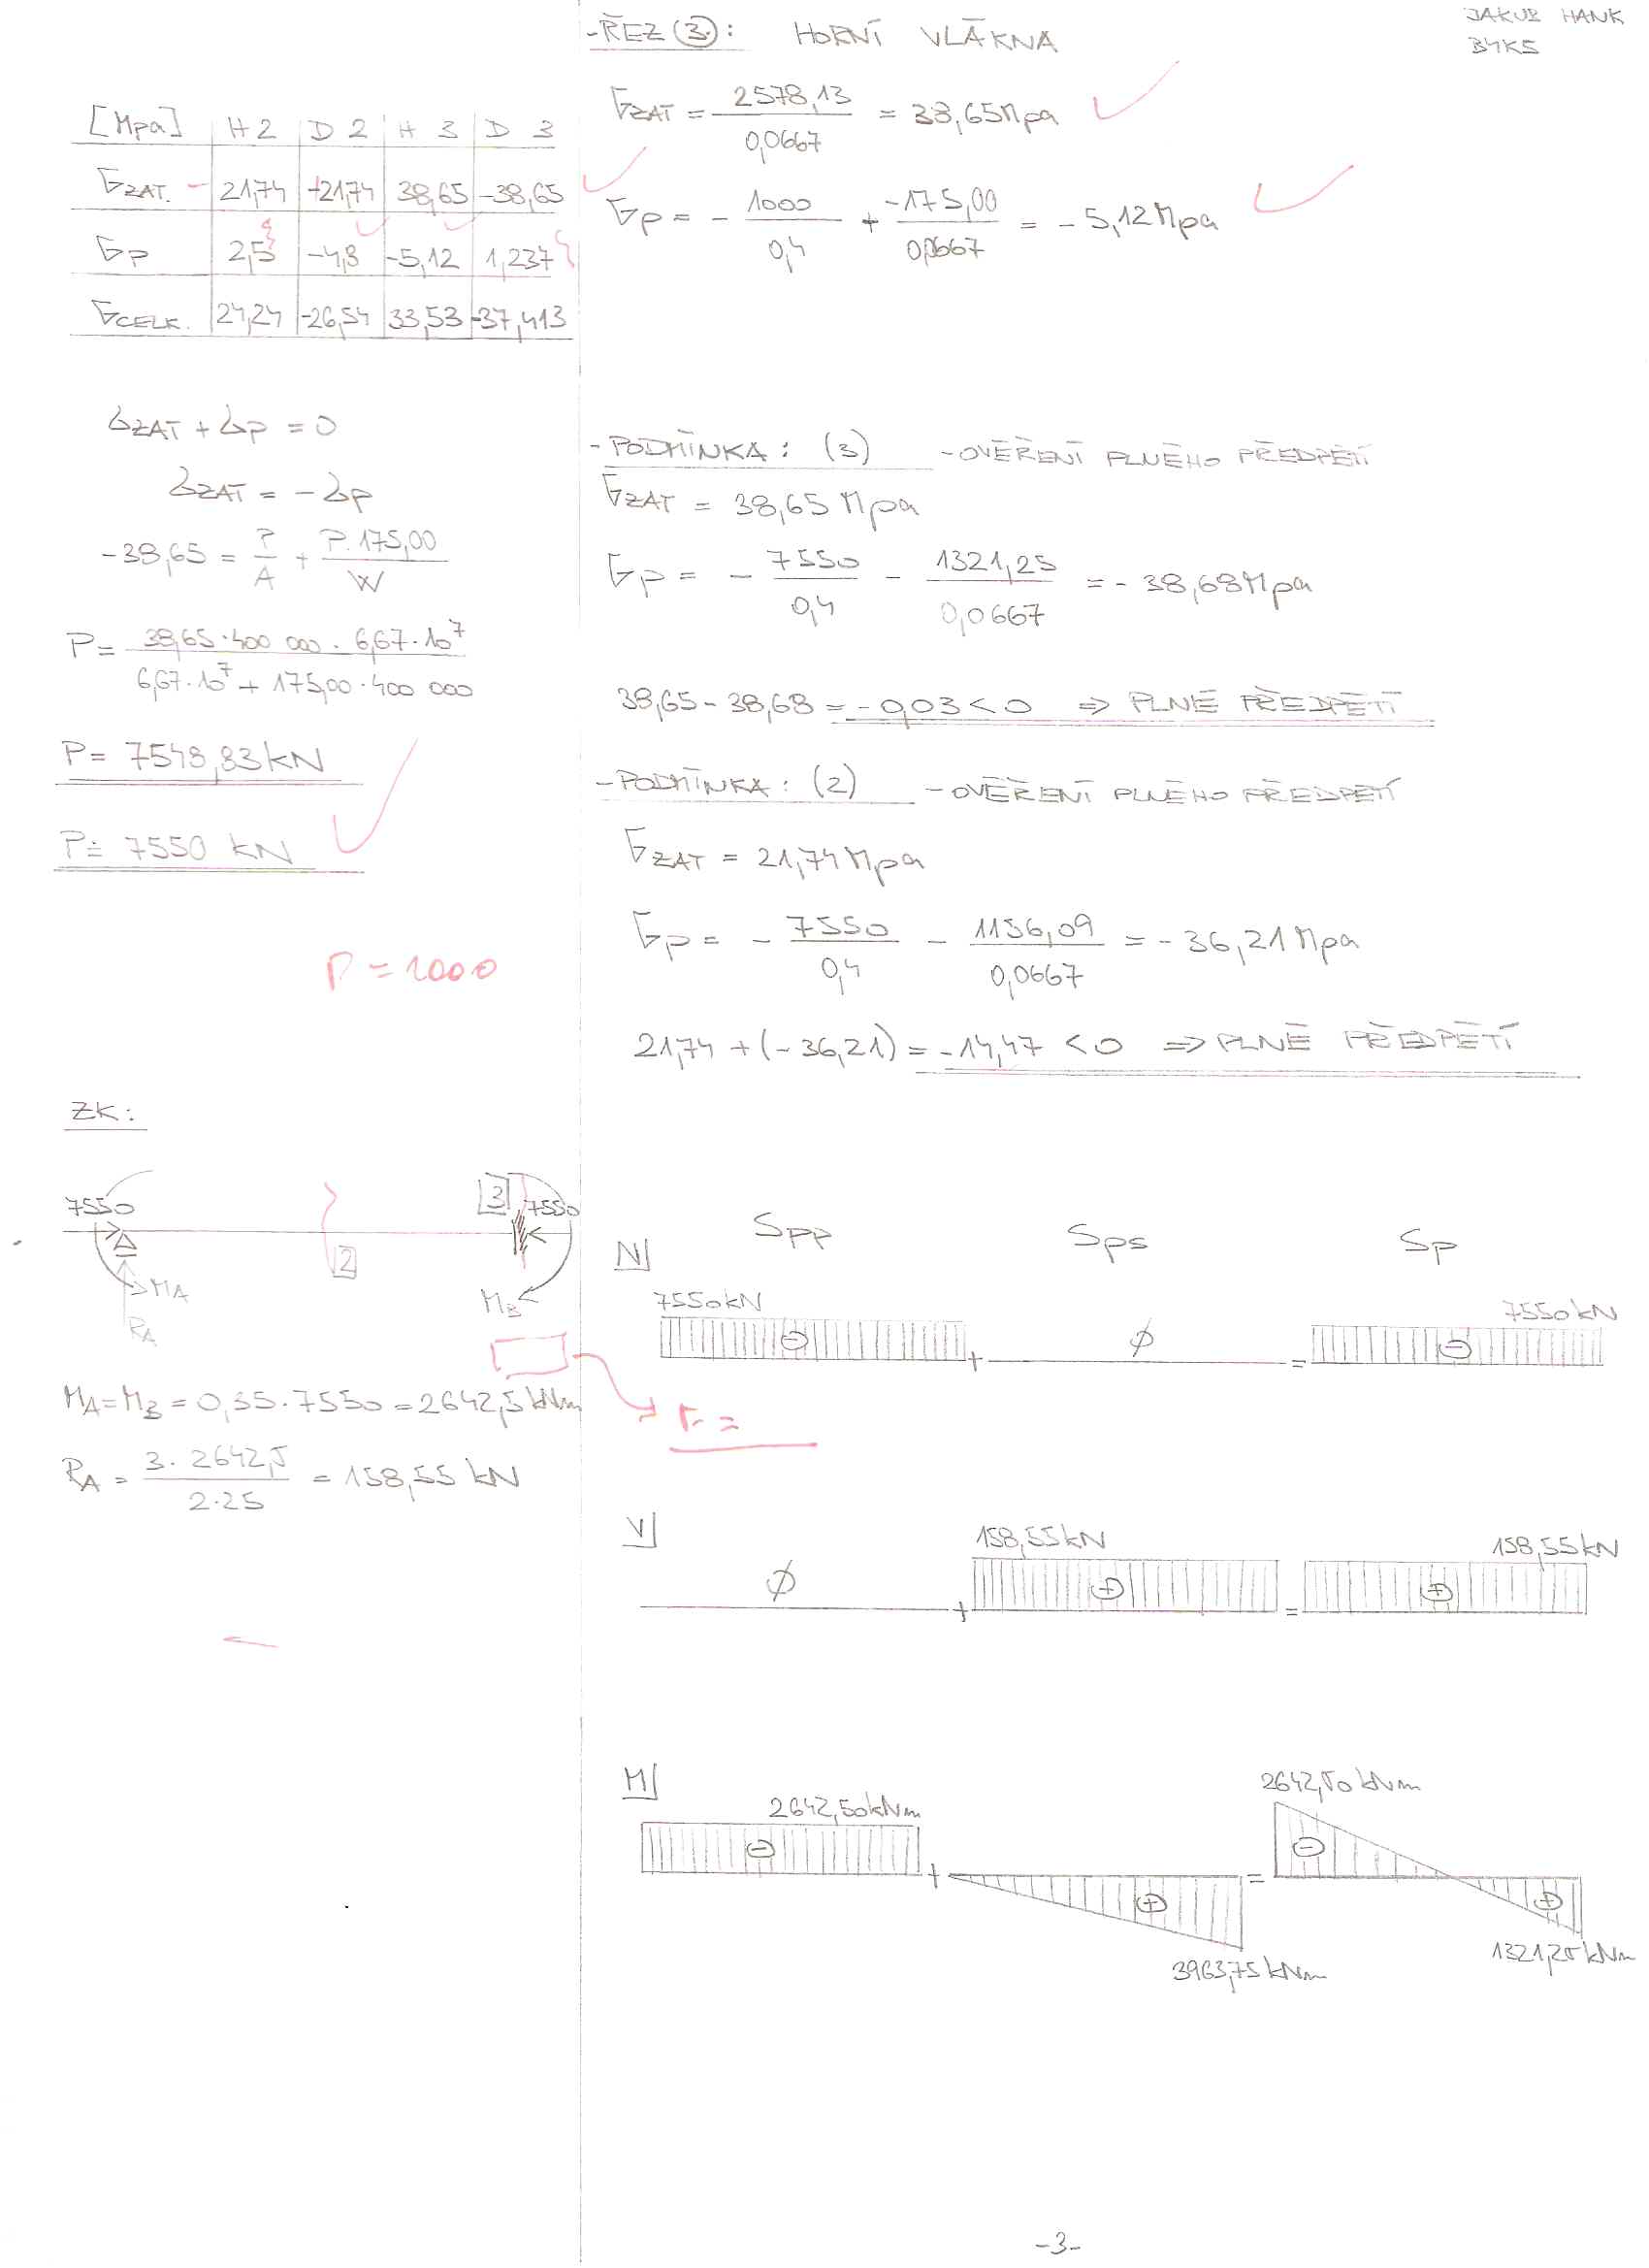 JAKUB HANK
B4K5
[Mpa] H2 D2 H3 D3
σZAT. -21,74 +21,74 38,65 -38,65
σp 2,5 -4,8 -5,12 1,237
σCELK. 24,24 -26,54 33,53 -37,413
σZAT + σp = 0
σZAT = -σp
-38,65 = P/A + P.175,00/W
P = 38,65·400 000 · 6,67·10⁷ / 6,67·10⁷ + 175,00·400 000
P = 7548,83 kN
P = 7550 kN
P = 1000
ZK:
7550 3 7550
2
MA MB
RA
MA = MB = 0,35·7550 = 2642,5 kNm
RA = 3·2642,5 / 2·25 = 158,55 kN
-ŘEZ (3.): HORNÍ VLÁKNA
σZAT = 2578,13 / 0,0667 = 38,65 Mpa
σp = - 1000/0,4 + -175,00/0,0667 = -5,12 Mpa
-PODMÍNKA: (3) -OVĚŘENÍ PLNÉHO PŘEDPĚTÍ
σZAT = 38,65 Mpa
σp = - 7550/0,4 - 1321,25/0,0667 = -38,68 Mpa
38,65 - 38,68 = -0,03 < 0 ⇒ PLNÉ PŘEDPĚTÍ
-PODMÍNKA: (2) -OVĚŘENÍ PLNÉHO PŘEDPĚTÍ
σZAT = 21,74 Mpa
σp = - 7550/0,4 - 1156,09/0,0667 = -36,21 Mpa
21,74 + (-36,21) = -14,47 < 0 ⇒ PLNÉ PŘEDPĚTÍ
Spp Sps Sp
N
7550 kN 7550 kN
⊖ + ∅ = ⊖
σ =
V
158,55 kN 158,55 kN
∅ + ⊕ = ⊕
M
2642,50 kNm 2642,50 kNm
⊖ + ⊕ = ⊖ ⊕
3963,75 kNm 1321,25 kNm
-3-